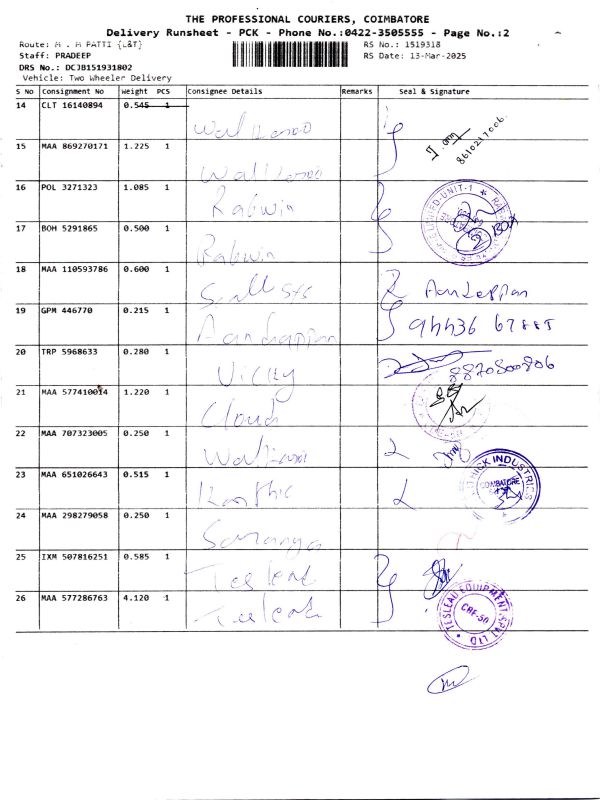 THE PROFESSIONAL COURIERS, COIMBATORE
Delivery Runsheet - PCK - Phone No.:0422-3505555 - Page No.:2
Route: M . M PATTI {L&T} RS No.: 1519318
Staff: PRADEEP RS Date: 13-Mar-2025
DRS No.: DCJB151931802
Vehicle: Two Wheeler Delivery
S No Consignment No Weight PCS Consignee Details Remarks Seal & Signature
14 CLT 16140894 0.545 1
15 MAA 869270171 1.225 1
8610217006
16 POL 3271323 1.085 1
Rabwin
17 BOM 5291865 0.500 1
Rabwin
18 MAA 110593786 0.600 1
19 GPM 446770 0.215 1
Aandappan
20 TRP 5968633 0.280 1
Vicky
21 MAA 577410014 1.220 1
Cloud
22 MAA 707323005 0.250 1
23 MAA 651026643 0.515 1
Karthic
INDUSTRIES
COIMBATORE
24 MAA 298279058 0.250 1
Saranya
25 IXM 507816251 0.585 1
Tesleau
26 MAA 577286763 4.120 1
Tesleau
TESLEAU EQUIPMENT (P) LTD
CBE-50